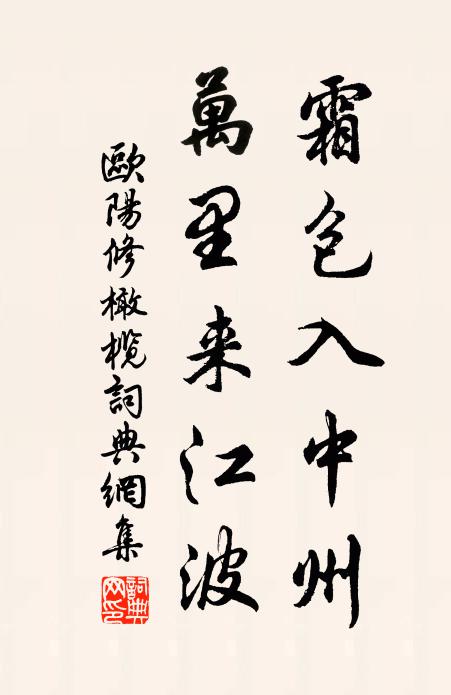 霜包入中州
萬里来江波
歐陽修橄榄詞典網集
詞典网印